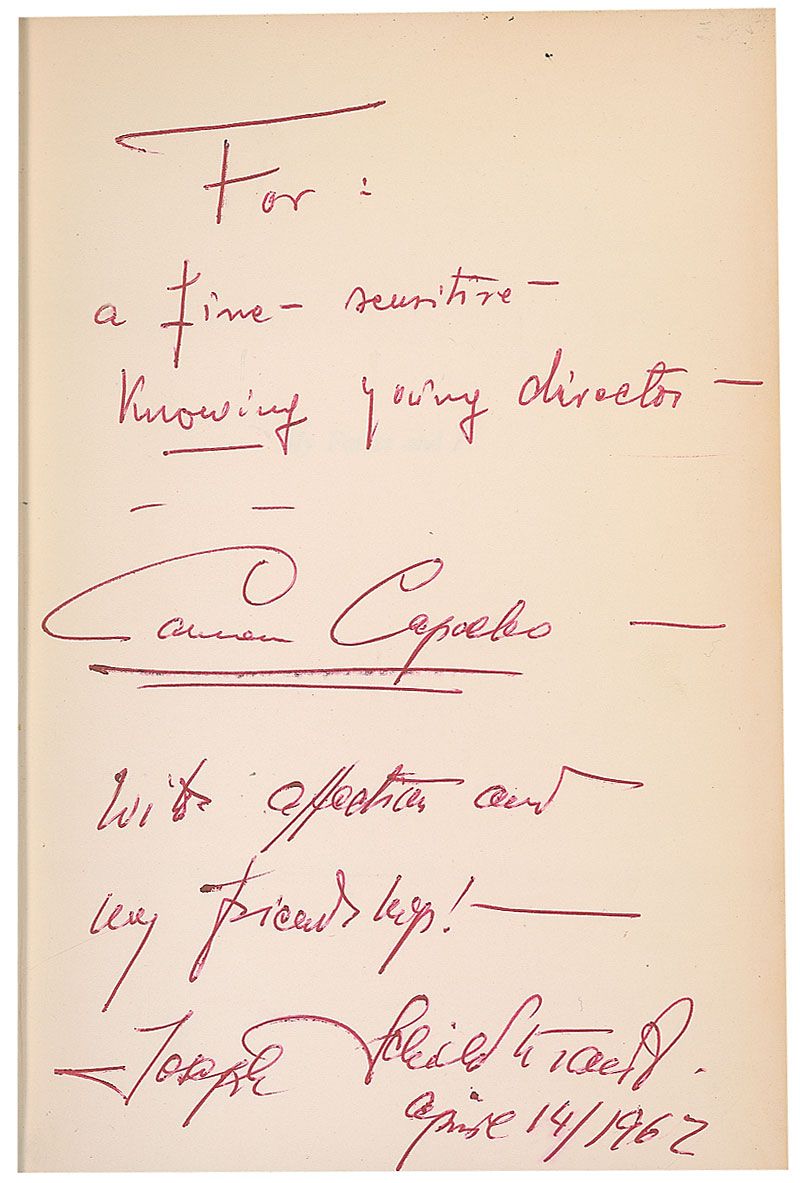 For :
a fine – sensitive –
Knowing young director –
– –
Carmen Capalbo –
With affection and
my friendship! –
– Joseph Schildkraut.
April 14/1962